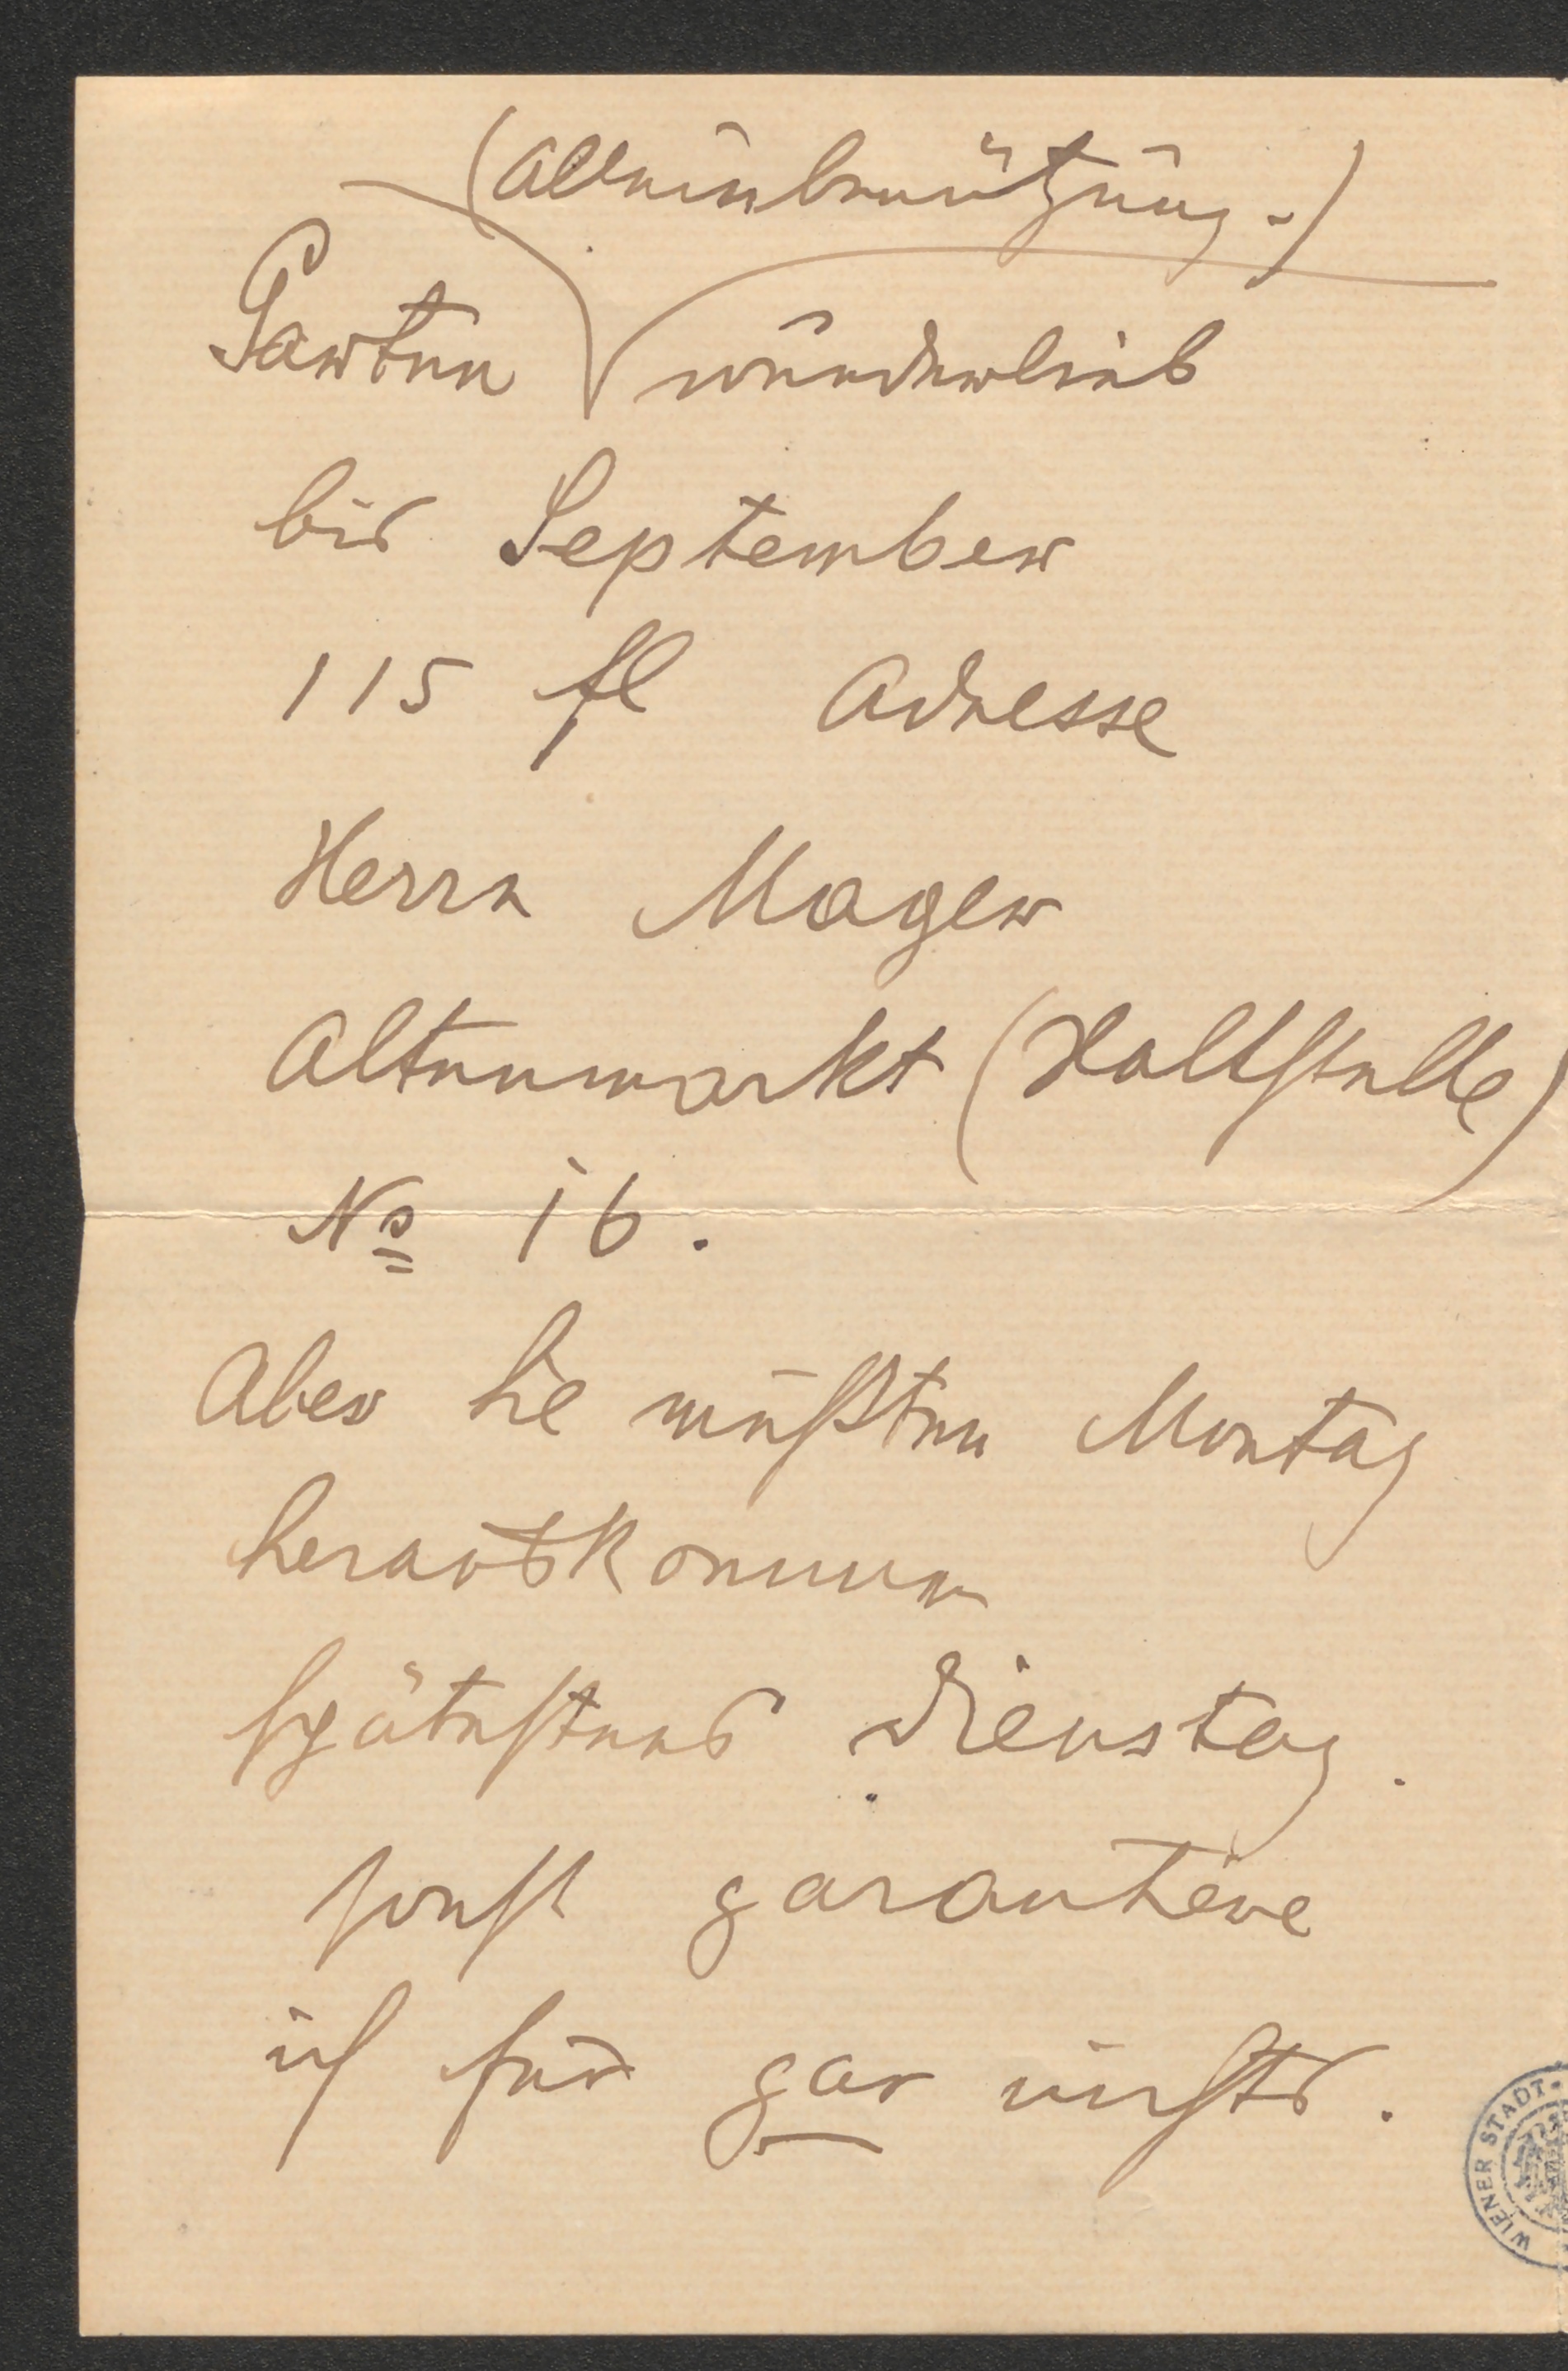 (Alleinbenützung.)
Garten wunderlieb
bis September
115 fl Adresse
Herrn Mager
Altenmarkt (Haltstelle)
No 16.
Aber Sie müßten Montag
herauskommen
spätestens Dienstag.
sonst garantiere
ich für gar nichts.
WIENER STADT-